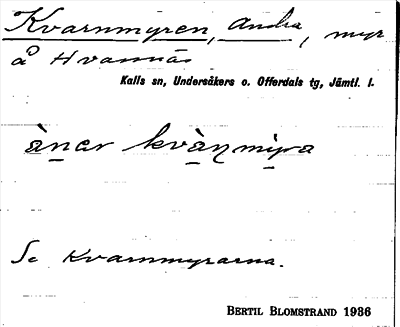 Kvarnmyren, Andra, myr
å Hvarnnäs
Kalls sn, Undersåkers o. Offerdals tg, Jämtl. l.
ànar kvàɳ mỳra
Se Kvarnmyrarna.
BERTIL BLOMSTRAND 1936